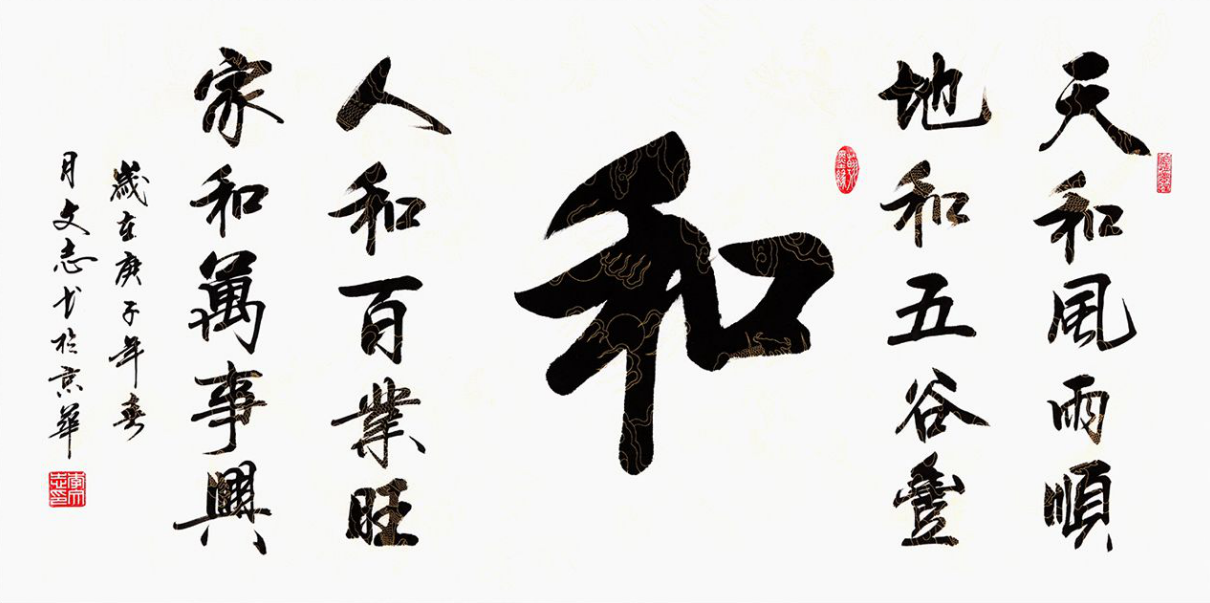 天和風雨順
地和五谷豐
和
人和百業旺
家和萬事興
歲在庚子年春
月文志书於京華